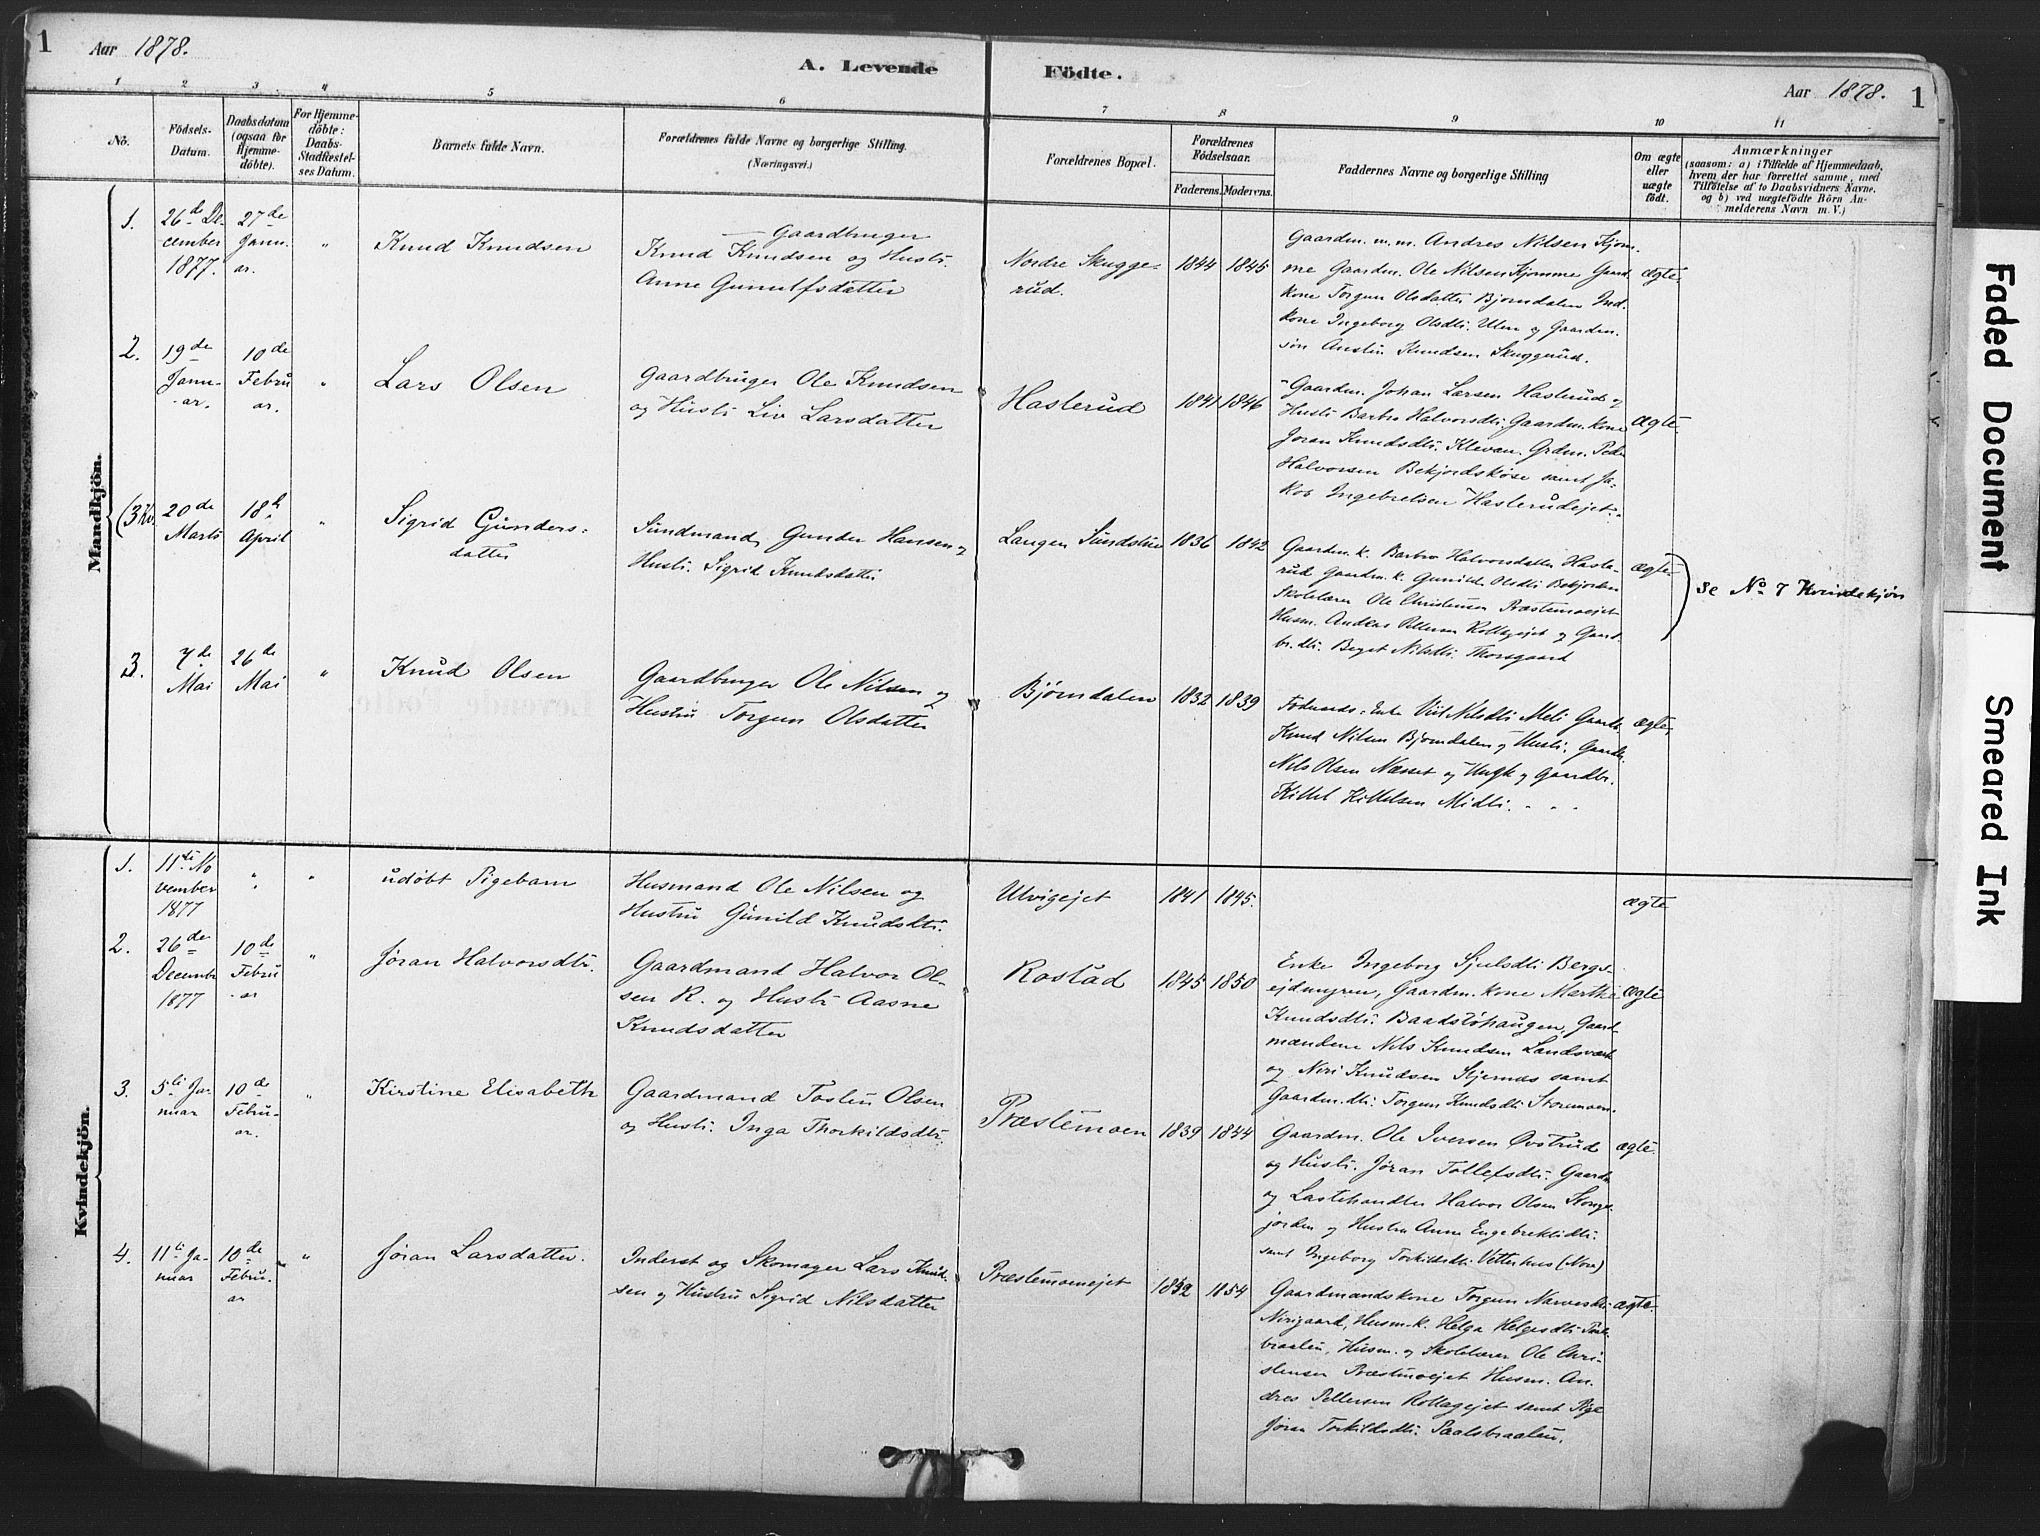 1 Aar 1878.
A. Levende Födte.
Aar 1878. 1
1 2 3 4 5 6 7 8 9 10 11
No.
Födsels-
Datum.
Daabsdatum
(ogsaa for
Hjemme-
döbte).
For Hjemme-
döbte:
Daabs-
Stadfæstel-
ses Datum.
Barnets fulde Navn.
Forældrenes fulde Navne og borgerlige Stilling.
(Næringsvei.)
Forældrenes Bopæl.
Forældrenes
Födselsaar.
Faderens. Moderens.
Faddernes Navne og borgerlige Stilling
Om ægte
eller
uægte
födt.
Anmærkninger
(saasom: a) i Tilfælde af Hjemmedaab,
hvem der har forrettet samme, med
Tilföielse af to Daabsvidners Navne.
og b) ved uægtefödte Börn An-
melderens Navn m. V.)
Mandkjön.
1.
26de De-
cember
1877.
27de
Janu-
ar.
"
Knud Knudsen
Gaardbruger
Knud Knudsen og Hustr.
Anne Gunulfsdatter
Nordre Skugge-
rud.
1844 1845
Gaardm. m. m. Andres Nilsen Kjom-
me Gaardm. Ole Nilsen Kjomme Gaard-
kone Torgun Olsdatter Bjorndalen Ind-
kone Ingeborg Olsdtr. Ulen og Gaardm.
søn Austin Knudsen Skuggerud.
ægte.
2.
19de
Janu-
ar.
10de
Febru
ar.
"
Lars Olsen
Gaardbruger Ole Knudsen
og Hustr. Liv Larsdatter
Hasterud
1841 1846
Gaardm. Johan Larsen Hasterud og
Hustr. Barbro Halvorsdtr. Gaardm. kone
Joran Knudsdtr. Klevan. Grdm. Peder
Halvorsen Bekjordskøse samt Ja-
kob Ingebretsen Hasterudejet.
ægte.
(3 Kv.
20de
Marts
18de
April
"
Sigrid Gunders-
datter
Sundmand Gunder Hansen og
Hustr. Sigrid Knudsdatter
Langen Sundstue
1836 1842
Gaardm. k. Barbro Halvorsdatter Haste-
rud Gaardm. k. Gunild Olsdtr. Bekjorden
Skolelærer Ole Christensen Præstemoejet
Husm. Andreas Pettersen Rollagejet og Gaard-
br. dtr. Beget Nilsdtr. Thorsgaard
ægte
se No 7 Kvindekjøn
3.
7de
Mai
26de
Mai
"
Knud Olsen
Gaardbruger Ole Nilsen og
Hustru Torgun Olsdatter
Bjørndalen
1832 1839
Enke Nilsdtr. Meli Gaardb.
Knud Nilsen Bjorndalen og Hustr. Gaardb.
Nils Olsen Næsset og Ungk. og Gaardbr.
Kittel Kittelsen Midtli.
ægte.
Kvindekjön.
1.
11te No
vember
1877
"
"
udøbt Pigebarn
Husmand Ole Nilsen og
Hustru Gunild Knudsdtr.
Ulvigejet
1841 1845.
ægte
2.
26de
Decembr
1877
10de
Febru
ar
"
Jøran Halvorsdtr.
Gaardmand Halvor Ol-
sen R. og Hustr. Aasne
Knudsdatter
Rostad
1845 1850
Enke Ingeborg Sjulsdtr. Bergs-
ejdmyren, Gaardm. kone Marthe
Knudsdtr. Baadstøhaugen, Gaard-
mændene Nils Knudsen Landsværk
og Niri Knudsen Stjernes samt
Gaardm. dtr. Torgun Knudsdtr. Storemoen.
ægte
3.
5te Ja-
nuar
10de
Febru-
ar.
"
Kirstine Elisabeth
Gaardmand Tosten Olsen
og Hustr. Inga Thorkildsdtr.
Præstemoen
1839 1844
Gaardm. Ole Iversen Øvstrud
og Hustr. Jøran Tollefsdtr. Gaardm.
og Lastehandler Halvor Olsen Stengs-
jorden og Hustru Anne Engebretsdtr.
samt Ingeborg Torkildsdtr. Vetterhus (Nore)
ægte.
4.
11te Ja-
nuar
10de
Febru-
ar
"
Jøran Larsdatter.
Inderst og Skomager Lars Knud-
sen og Hustru Sigrid Nilsdatter
Præstemoenejet
1852 1854
Gaardmandskone Torgun Narvesdtr.
Nirigaard, Husm. k. Helga Helgesdtr.
Husm. og Skolelærer Ole Chri-
stensen Præstemoejet Husm. An-
dres Pettersen Rollagejet samt Pige
Jøran Torkildsdtr. Paalsbraaten.
ægte.
Faded Document
Smeared Ink